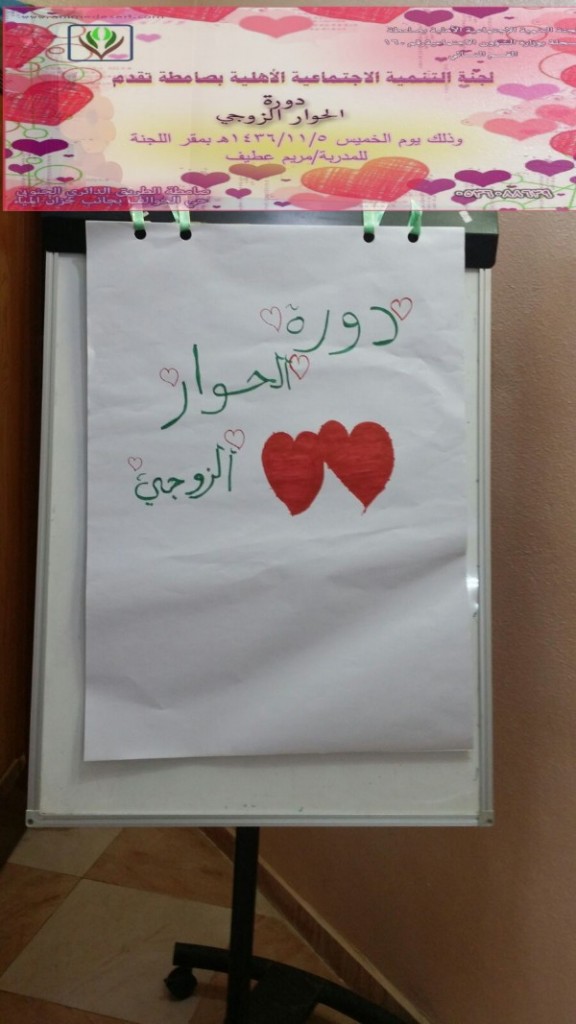 لجنة التنمية الاجتماعية الأهلية بصامطة تقدم
دورة
الحوار الزوجي
وذلك يوم الخميس ١٤٣٦/١١/٥هـ بمقر اللجنة
للمدربة/مريم عطيف
بصامطة الطريق الدائري الجنوبي
دورة
الحوار
الزوجي